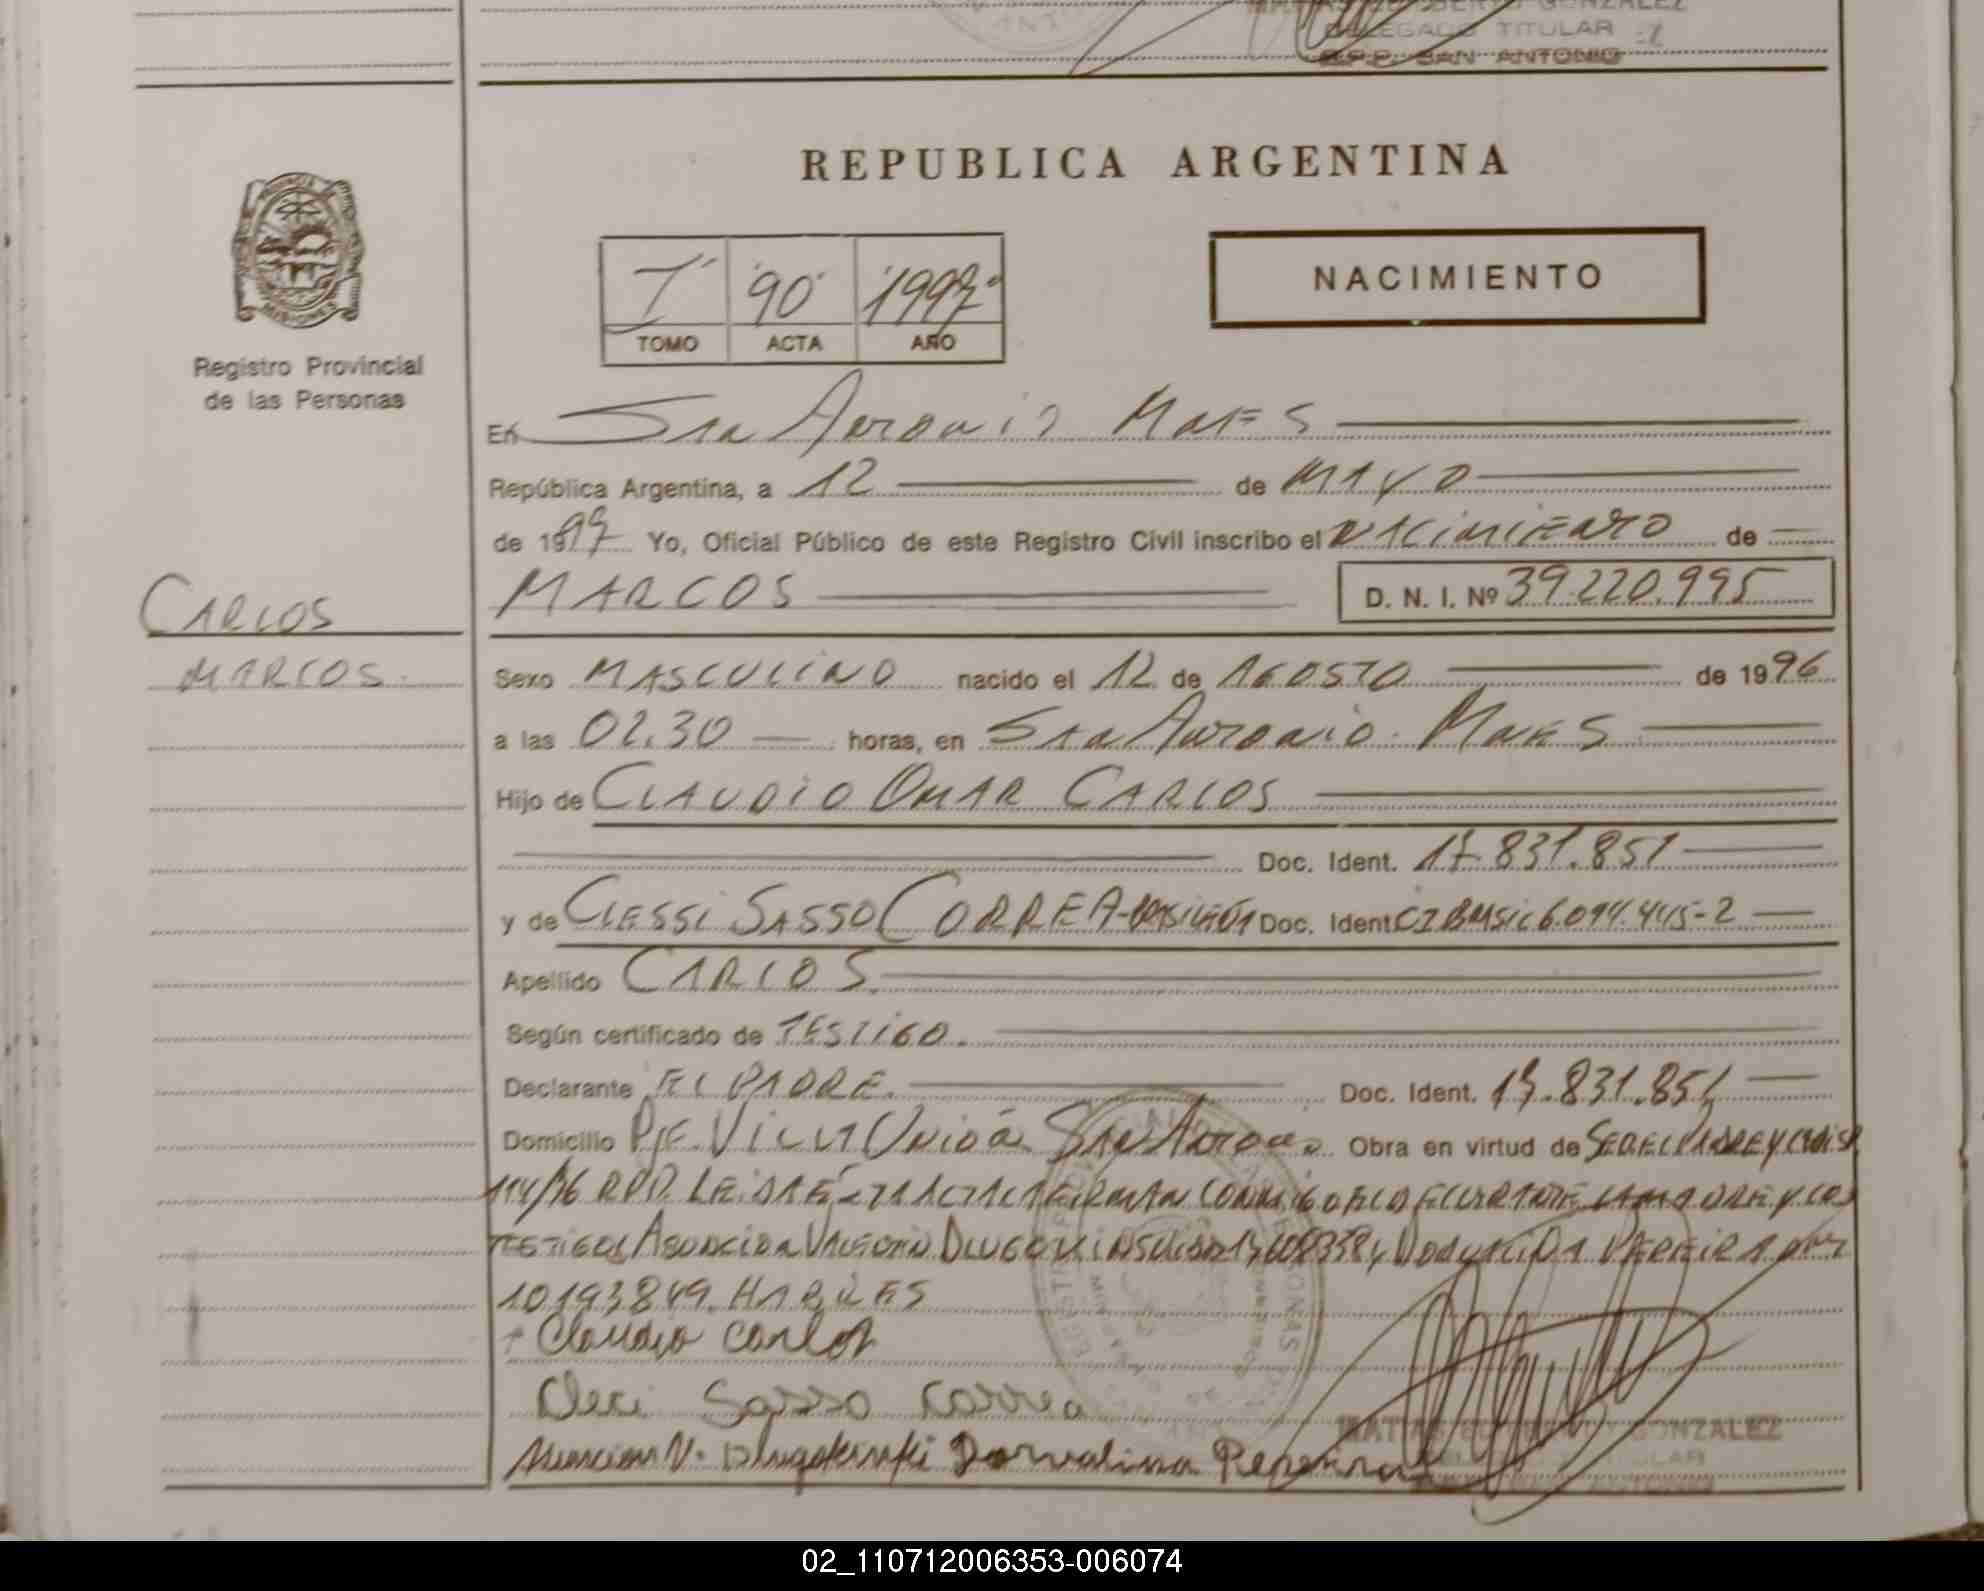 DELEGADO TITULAR
R.P.P. SAN ANTONIO
REPUBLICA ARGENTINA
PROVINCIA
MISIONES
Registro Provincial
de las Personas
I 90 1997
TOMO ACTA AÑO
NACIMIENTO
En San Antonio Mnes
República Argentina, a 12 de MAYO
de 1997 Yo, Oficial Público de este Registro Civil inscribo el NACIMIENTO de
MARCOS D. N. I. Nº 39.220.995
CARLOS
MARCOS.
Sexo MASCULINO nacido el 12 de AGOSTO de 1996
a las 02.30 horas, en San Antonio Mnes
Hijo de CLAUDIO OMAR CARLOS
Doc. Ident. 17.831.851
y de CLESSI SASSO CORREA - Doc. Ident. CI 6.094.445-2
Apellido CARLOS
Según certificado de TESTIGO.
Declarante EL PADRE. Doc. Ident. 17.831.851
Domicilio PJE. VILLA UNION San Antonio. Obra en virtud de
RPP. LEIDA ESTA ACTA LA FIRMAN CONMIGO EL DECLARANTE LA MADRE Y LOS
TESTIGOS ASUNCION VALENTIN y DORVALINA PEREIRA
10193849. HABILES
Claudio Carlos
Cleci Sasso Correa
Asuncion V. Dlugokinski Dorvalina Pereira
GONZALEZ
02_110712006353-006074